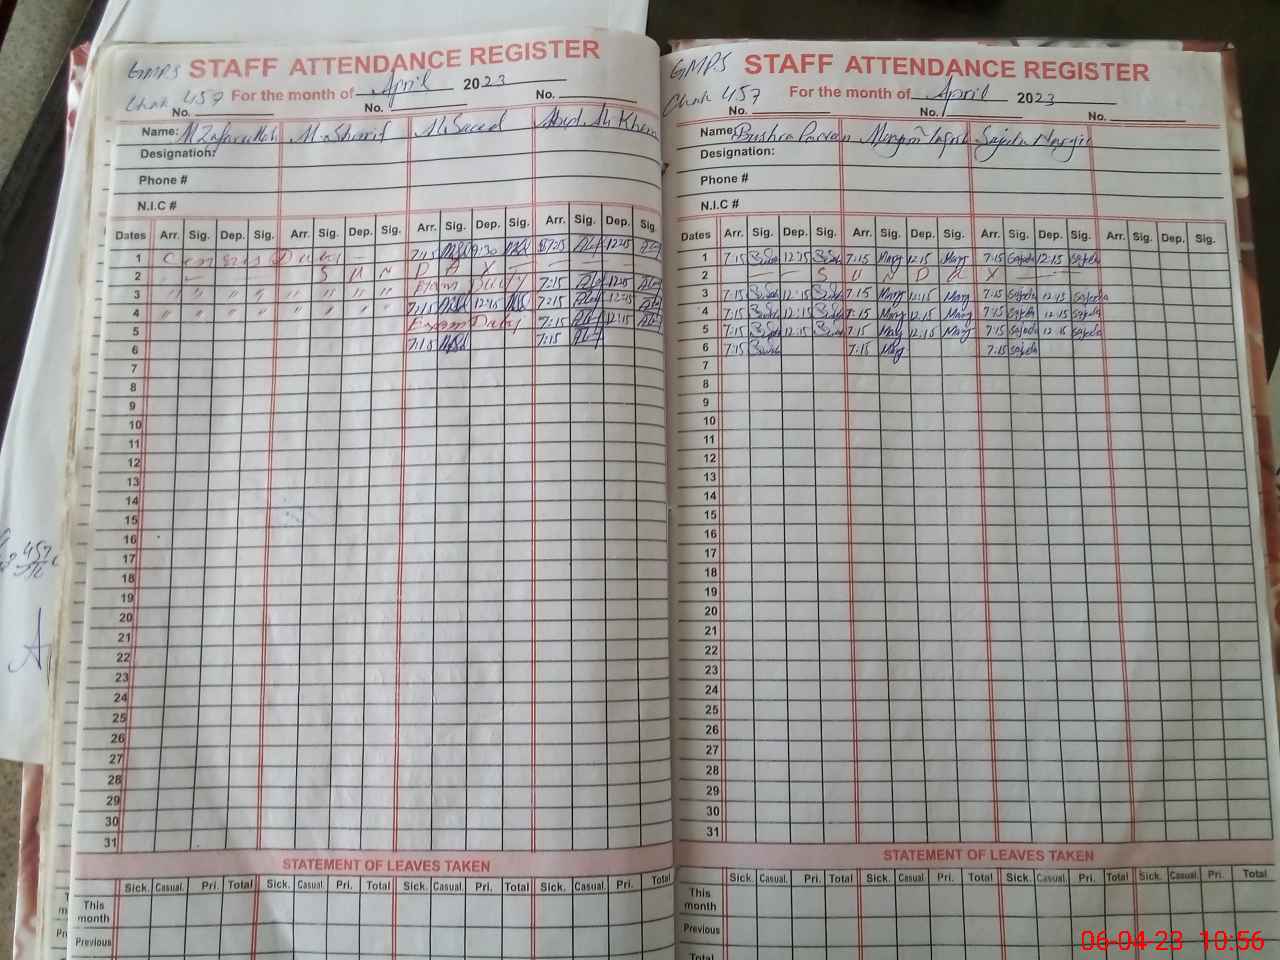 GMPS STAFF ATTENDANCE REGISTER
Chak 457 For the month of April 2023
No. No. No.
Name: M Zafarullah M. Sharif M. Saeed Abid Ali Khan
Designation:
Phone #
N.I.C #
Dates Arr. Sig. Dep. Sig. Arr. Sig. Dep. Sig. Arr. Sig. Dep. Sig. Arr. Sig. Dep. Sig.
1 Census Duty 7:15 9:30 7:15 12:15
2 S U N D A Y
3 " " " " " " " " Exam Duty 7:15 12:15
4 " " " " " " " " 7:15 12:15 7:15 12:15
5 Exam Duty 7:15 12:15
6 7:15 7:15
7
8
9
10
11
12
13
14
15
16
17
18
19
20
21
22
23
24
25
26
27
28
29
30
31
STATEMENT OF LEAVES TAKEN
Sick. Casual. Pri. Total Sick. Casual. Pri. Total Sick. Casual. Pri. Total Sick. Casual. Pri. Total
This month
Previous
GMPS STAFF ATTENDANCE REGISTER
Chak 457 For the month of April 2023
No. No. No.
Name: Bushra Parveen Maryam Sajida Nargis
Designation:
Phone #
N.I.C #
Dates Arr. Sig. Dep. Sig. Arr. Sig. Dep. Sig. Arr. Sig. Dep. Sig. Arr. Sig. Dep. Sig.
1 7:15 12:15 7:15 Mary 12:15 Mary 7:15 Sajida 12:15 Sajida
2 S U N D A Y
3 7:15 12:15 7:15 Mary 12:15 Mary 7:15 Sajida 12:15 Sajida
4 7:15 12:15 7:15 Mary 12:15 Mary 7:15 Sajida 12:15 Sajida
5 7:15 12:15 7:15 Mary 12:15 Mary 7:15 Sajida 12:15 Sajida
6 7:15 7:15 Mary 7:15 Sajida
7
8
9
10
11
12
13
14
15
16
17
18
19
20
21
22
23
24
25
26
27
28
29
30
31
STATEMENT OF LEAVES TAKEN
Sick. Casual. Pri. Total Sick. Casual. Pri. Total Sick. Casual. Pri. Total Sick. Casual. Pri. Total
This month
Previous
Total
457
06-04-23 10:56